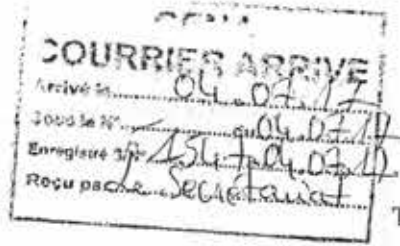 COURRIER ARRIVE
Arrivé le 04.07.17
Sous le N° 04.07.17
Enregistré 04.07.17
Reçu par Secrétariat
T